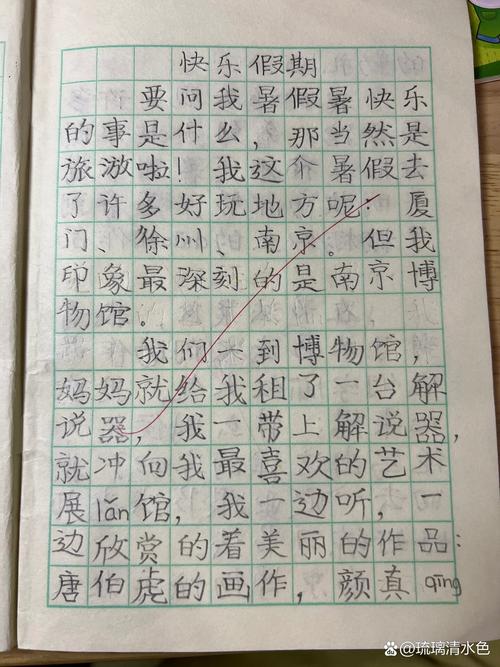 快乐假期
要问我暑假暑快乐
的事是什么，那当然是
旅游啦！我这个暑假去
了许多好玩地方呢：厦
门、徐州、南京。但我
印象最深刻的是南京博
物馆。
我们一到博物馆，
妈妈就给我租了一台解
说器，我一带上解说器，
就冲向我最喜欢的艺术
展lǎn馆，我一边听，一
边欣赏的着美丽的作品：
唐伯虎的画作，颜真qīng
琉璃清水色